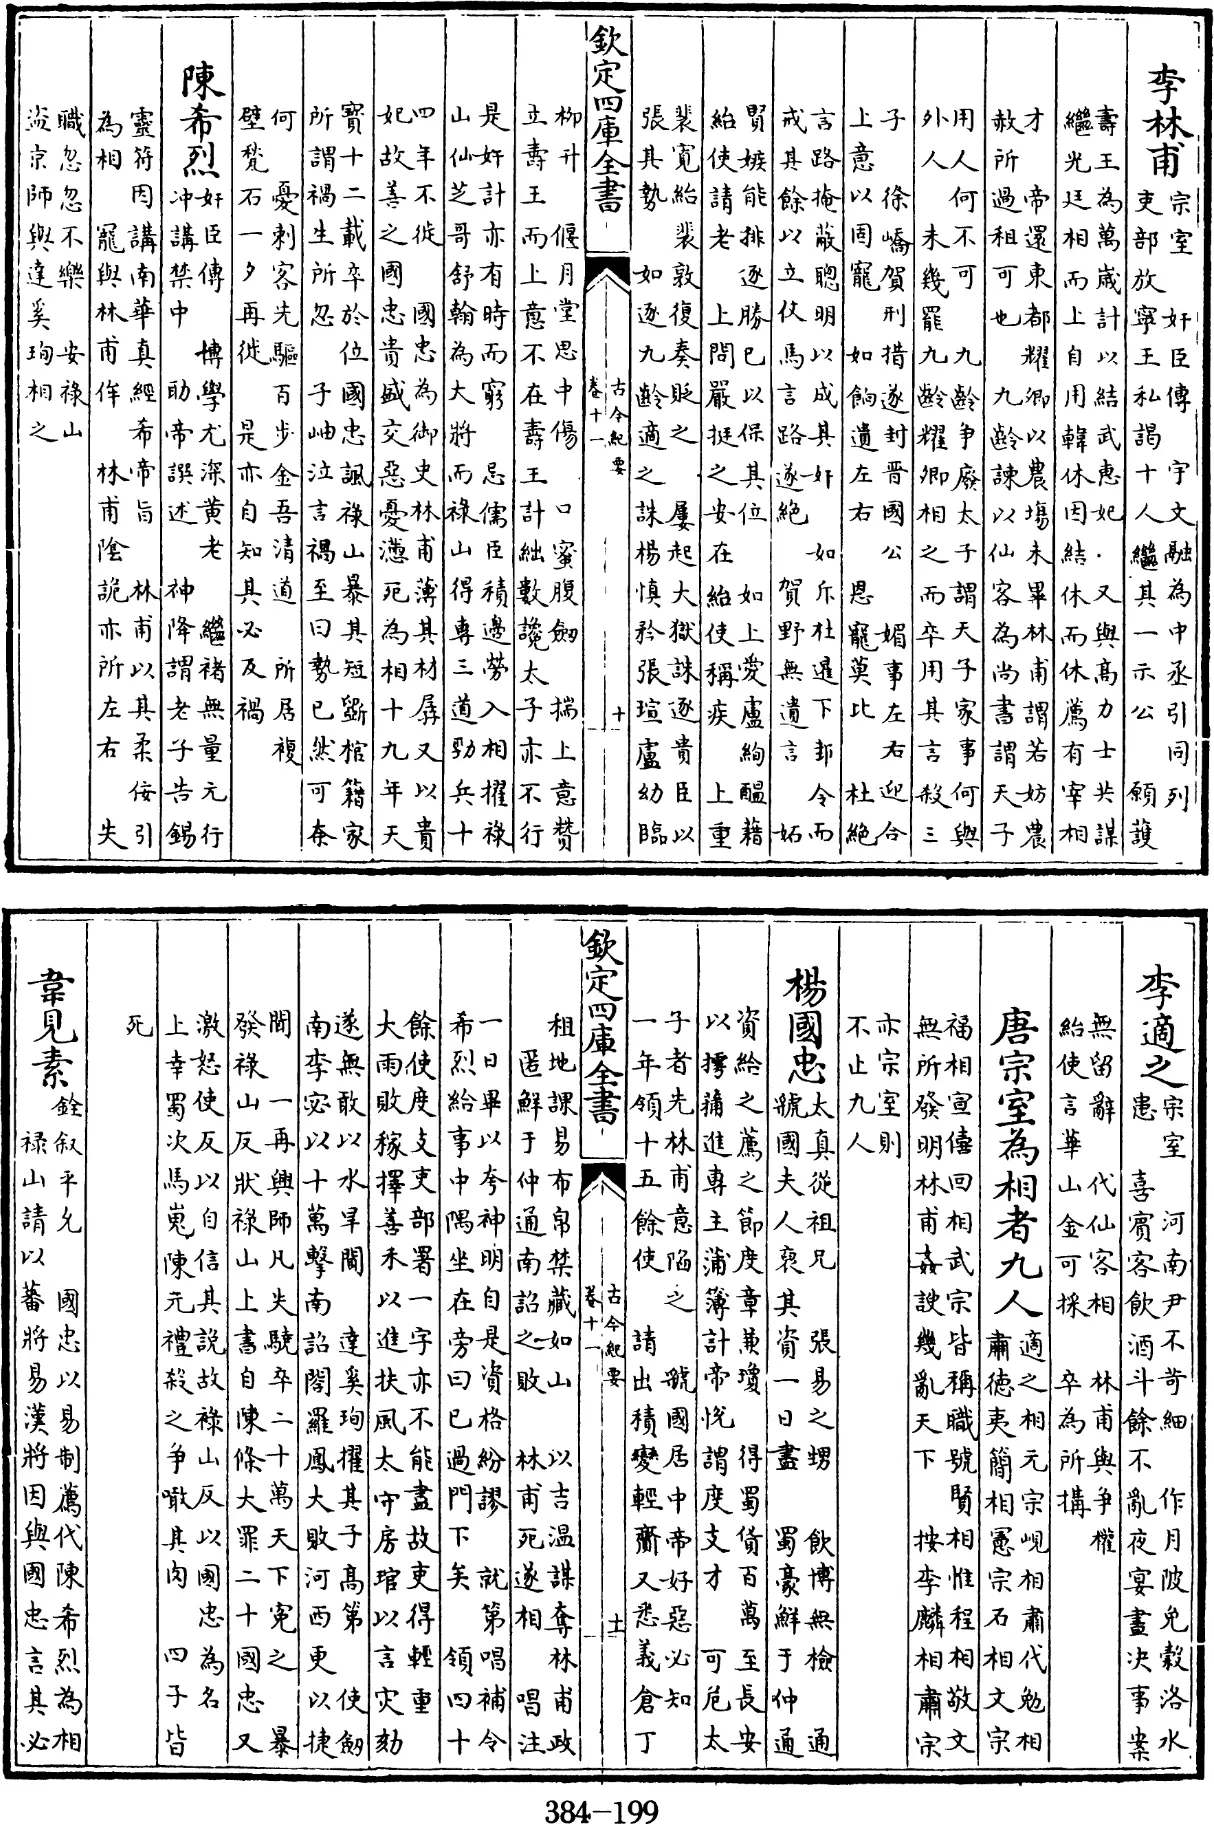 李林甫
宗室　奸臣傳　宇文融為中丞引同列
吏部放寧王私謁十人繼其一示公　願護
壽王為萬歲計以結武惠妃．又與高力士共謀
繼光廷相而上自用韓休因結休而休薦有宰相
才　帝還東都耀卿以農場未畢林甫謂若妨農
赦所過租可也　九齡諫以仙客為尚書謂天子
用人何不可　九齡爭廢太子謂天子家事何與
外人　未幾罷九齡耀卿相之而卒用其言殺三
子　徐嶠賀刑措遂封晉國公　媚事左右迎合
上意以固寵　如餉遺左右　恩寵莫比　杜絶
言路掩蔽聰明以成其奸　如斥杜暹下邽令而
戒其餘以立仗馬言路遂絶　賀野無遺言　妬
賢嫉能排逐勝已以保其位　如上愛盧絢醖藉
紿使請老　上問嚴挺之安在紿使稱疾　上重
裴寛紿裴敦復奏貶之　屢起大獄誅逐貴臣以
張其勢　如逐九齡適之誅楊慎矜張瑄盧幼臨
欽定四庫全書
古今紀要
卷十一
十
柳升　偃月堂思中傷　口蜜腹劒　揣上意賛
立壽王而上意不在壽王計絀數讒太子亦不行
是奸計亦有時而窮　忌儒臣積邊勞入相擢祿
山仙芝哥舒翰為大將而祿山得專三道勁兵十
四年不徙　國忠為御史林甫薄其材孱又以貴
妃故善之國忠貴盛交惡憂懣死為相十九年天
寶十二載卒於位國忠諷祿山暴其短斵棺籍家
所謂禍生所忽　子岫泣言禍至曰勢已然可奈
何　憂刺客先驅百步金吾清道　所居複
壁甃石一夕再徙　是亦自知其必及禍
陳希烈
奸臣傳　博學尤深黃老　繼褚無量元行
冲講禁中　助帝譔述　神降謂老子告錫
靈符因講南華真經希帝旨　林甫以其柔佞引
為相　寵與林甫侔　林甫陰詭亦所左右　失
職忽忽不樂　安祿山
盜京師與達奚珣相之
李適之
宗室　河南尹不苛細　作月陂免穀洛水
患　喜賓客飲酒斗餘不亂夜宴晝决事案
無留辭　代仙客相　林甫與爭權
紿使言華山金可採　卒為所搆
唐宗室為相者九人
適之相元宗峴相肅代勉相
肅德夷簡相憲宗石相文宗
福相宣僖回相武宗皆稱職號賢相惟程相敬文
無所發明林甫姦諛幾亂天下　按李麟相肅宗
亦宗室則
不止九人
楊國忠
太真從祖兄　張易之甥　飲博無檢　通
虢國夫人裒其資一日盡　蜀豪鮮于仲通
資給之薦之節度章兼瓊　得蜀貨百萬至長安
以摴蒱進專主蒲簿計帝悅謂度支才　可危太
子者先林甫意陷之　虢國居中帝好惡必知
一年領十五餘使　請出積變輕齎又悉義倉丁
欽定四庫全書
古今紀要
卷十一
十一
租地課易布帛禁藏如山　以吉温謀奪林甫政
匿鮮于仲通南詔之敗　林甫死遂相　唱注
一日畢以夸神明自是資格紛謬　就第唱補令
希烈給事中隅坐在旁曰已過門下矣　領四十
餘使度支吏部署一字亦不能盡故吏得輕重
大雨敗稼擇善禾以進扶風太守房琯以言灾劾
遂無敢以水旱聞　達奚珣擢其子髙第　使劒
南李宓以十萬擊南詔閤羅鳳大敗河西更以捷
聞　一再興師凡失驍卒二十萬天下寃之　暴
發祿山反狀祿山上書自陳條大罪二十國忠又
激怒使反以自信其說故祿山反以國忠為名
上幸蜀次馬嵬陳元禮殺之爭噉其肉　四子皆
死
韋見素
銓叙平允　國忠以易制薦代陳希烈為相
祿山請以蕃將易漢將因與國忠言其必
384-199